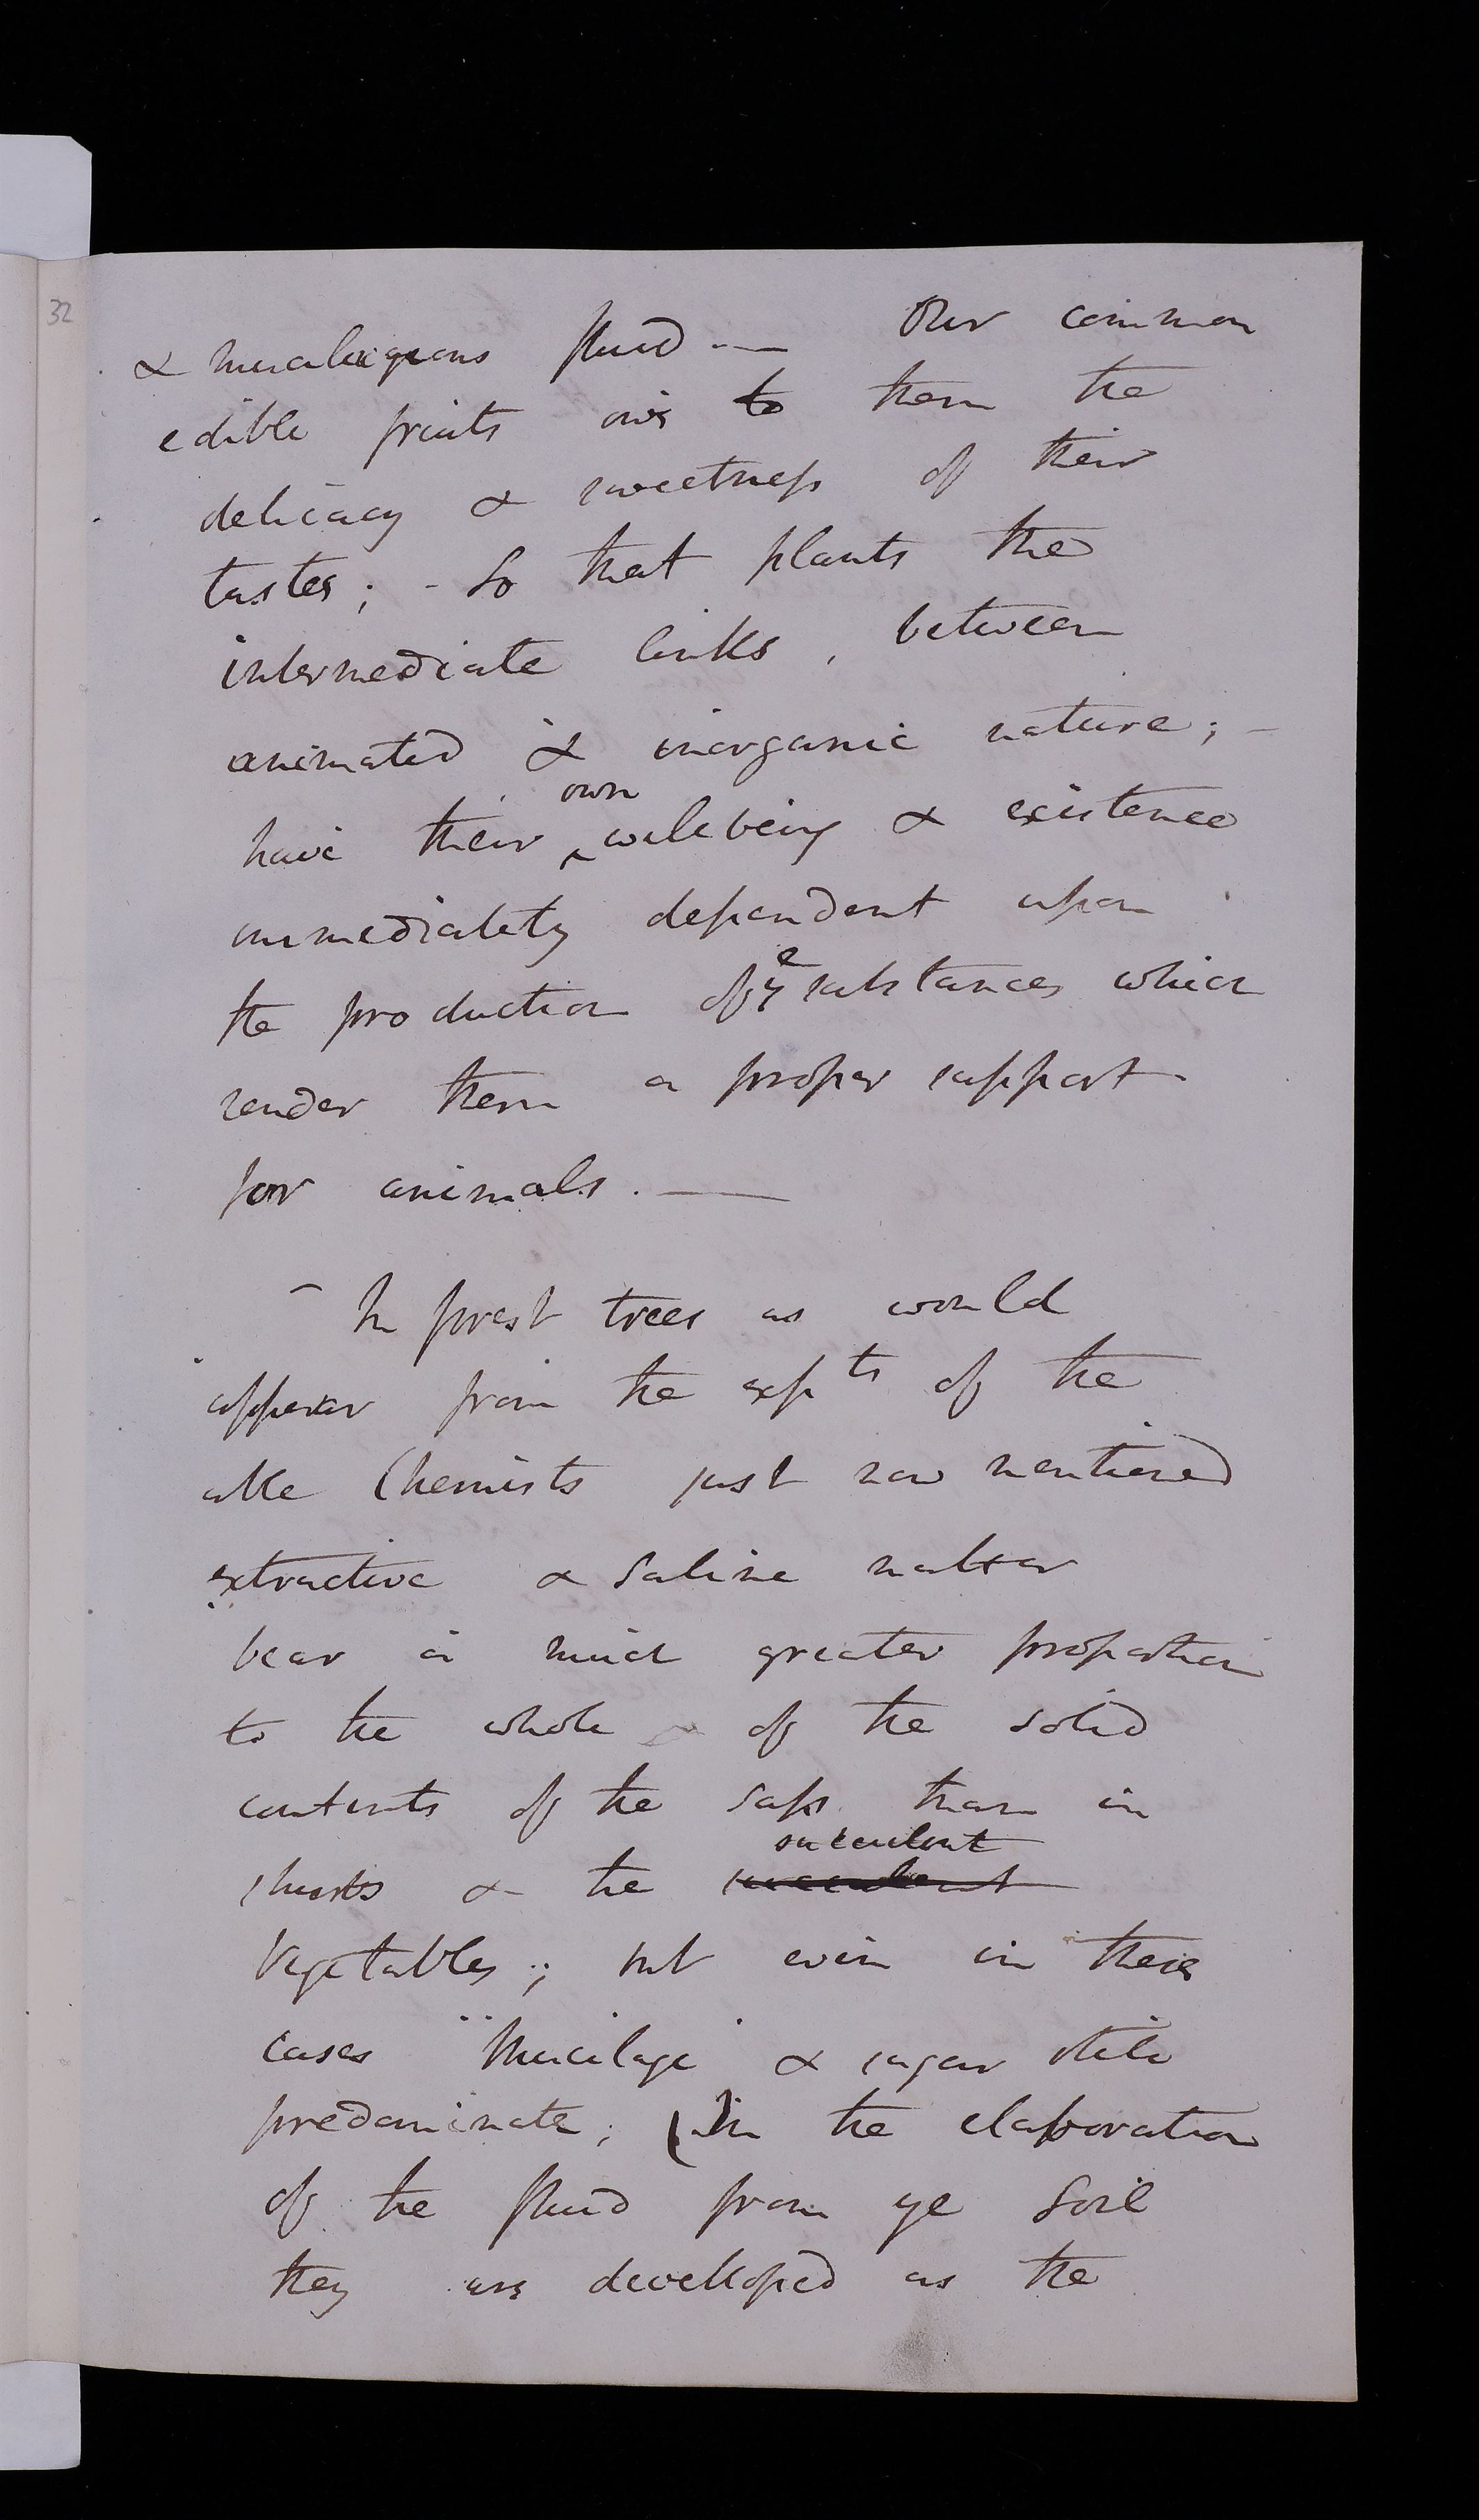 32
& mucilaginous fluid. — Our common
edible fruits owe to them the
delicacy & sweetness of their
tastes; - So that plants the
intermediate links, between
animated & inorganic nature; -
own
have their ^ wellbeing & existence
immediately dependent upon
the production of ye substances which
render them a proper support
for animals. —
- In forest trees as would
appear from the expts of the
able Chemists just now mentioned
extractive & saline matter
bear a much greater proportion
to the whole of the solid
contents of the sap than in
succulent
shrubs & the succulent
Vegetables; but even in these
cases Mucilage & sugar still
predominate; (In the elaboration
of the fluid from ye Soil
they are developed as the